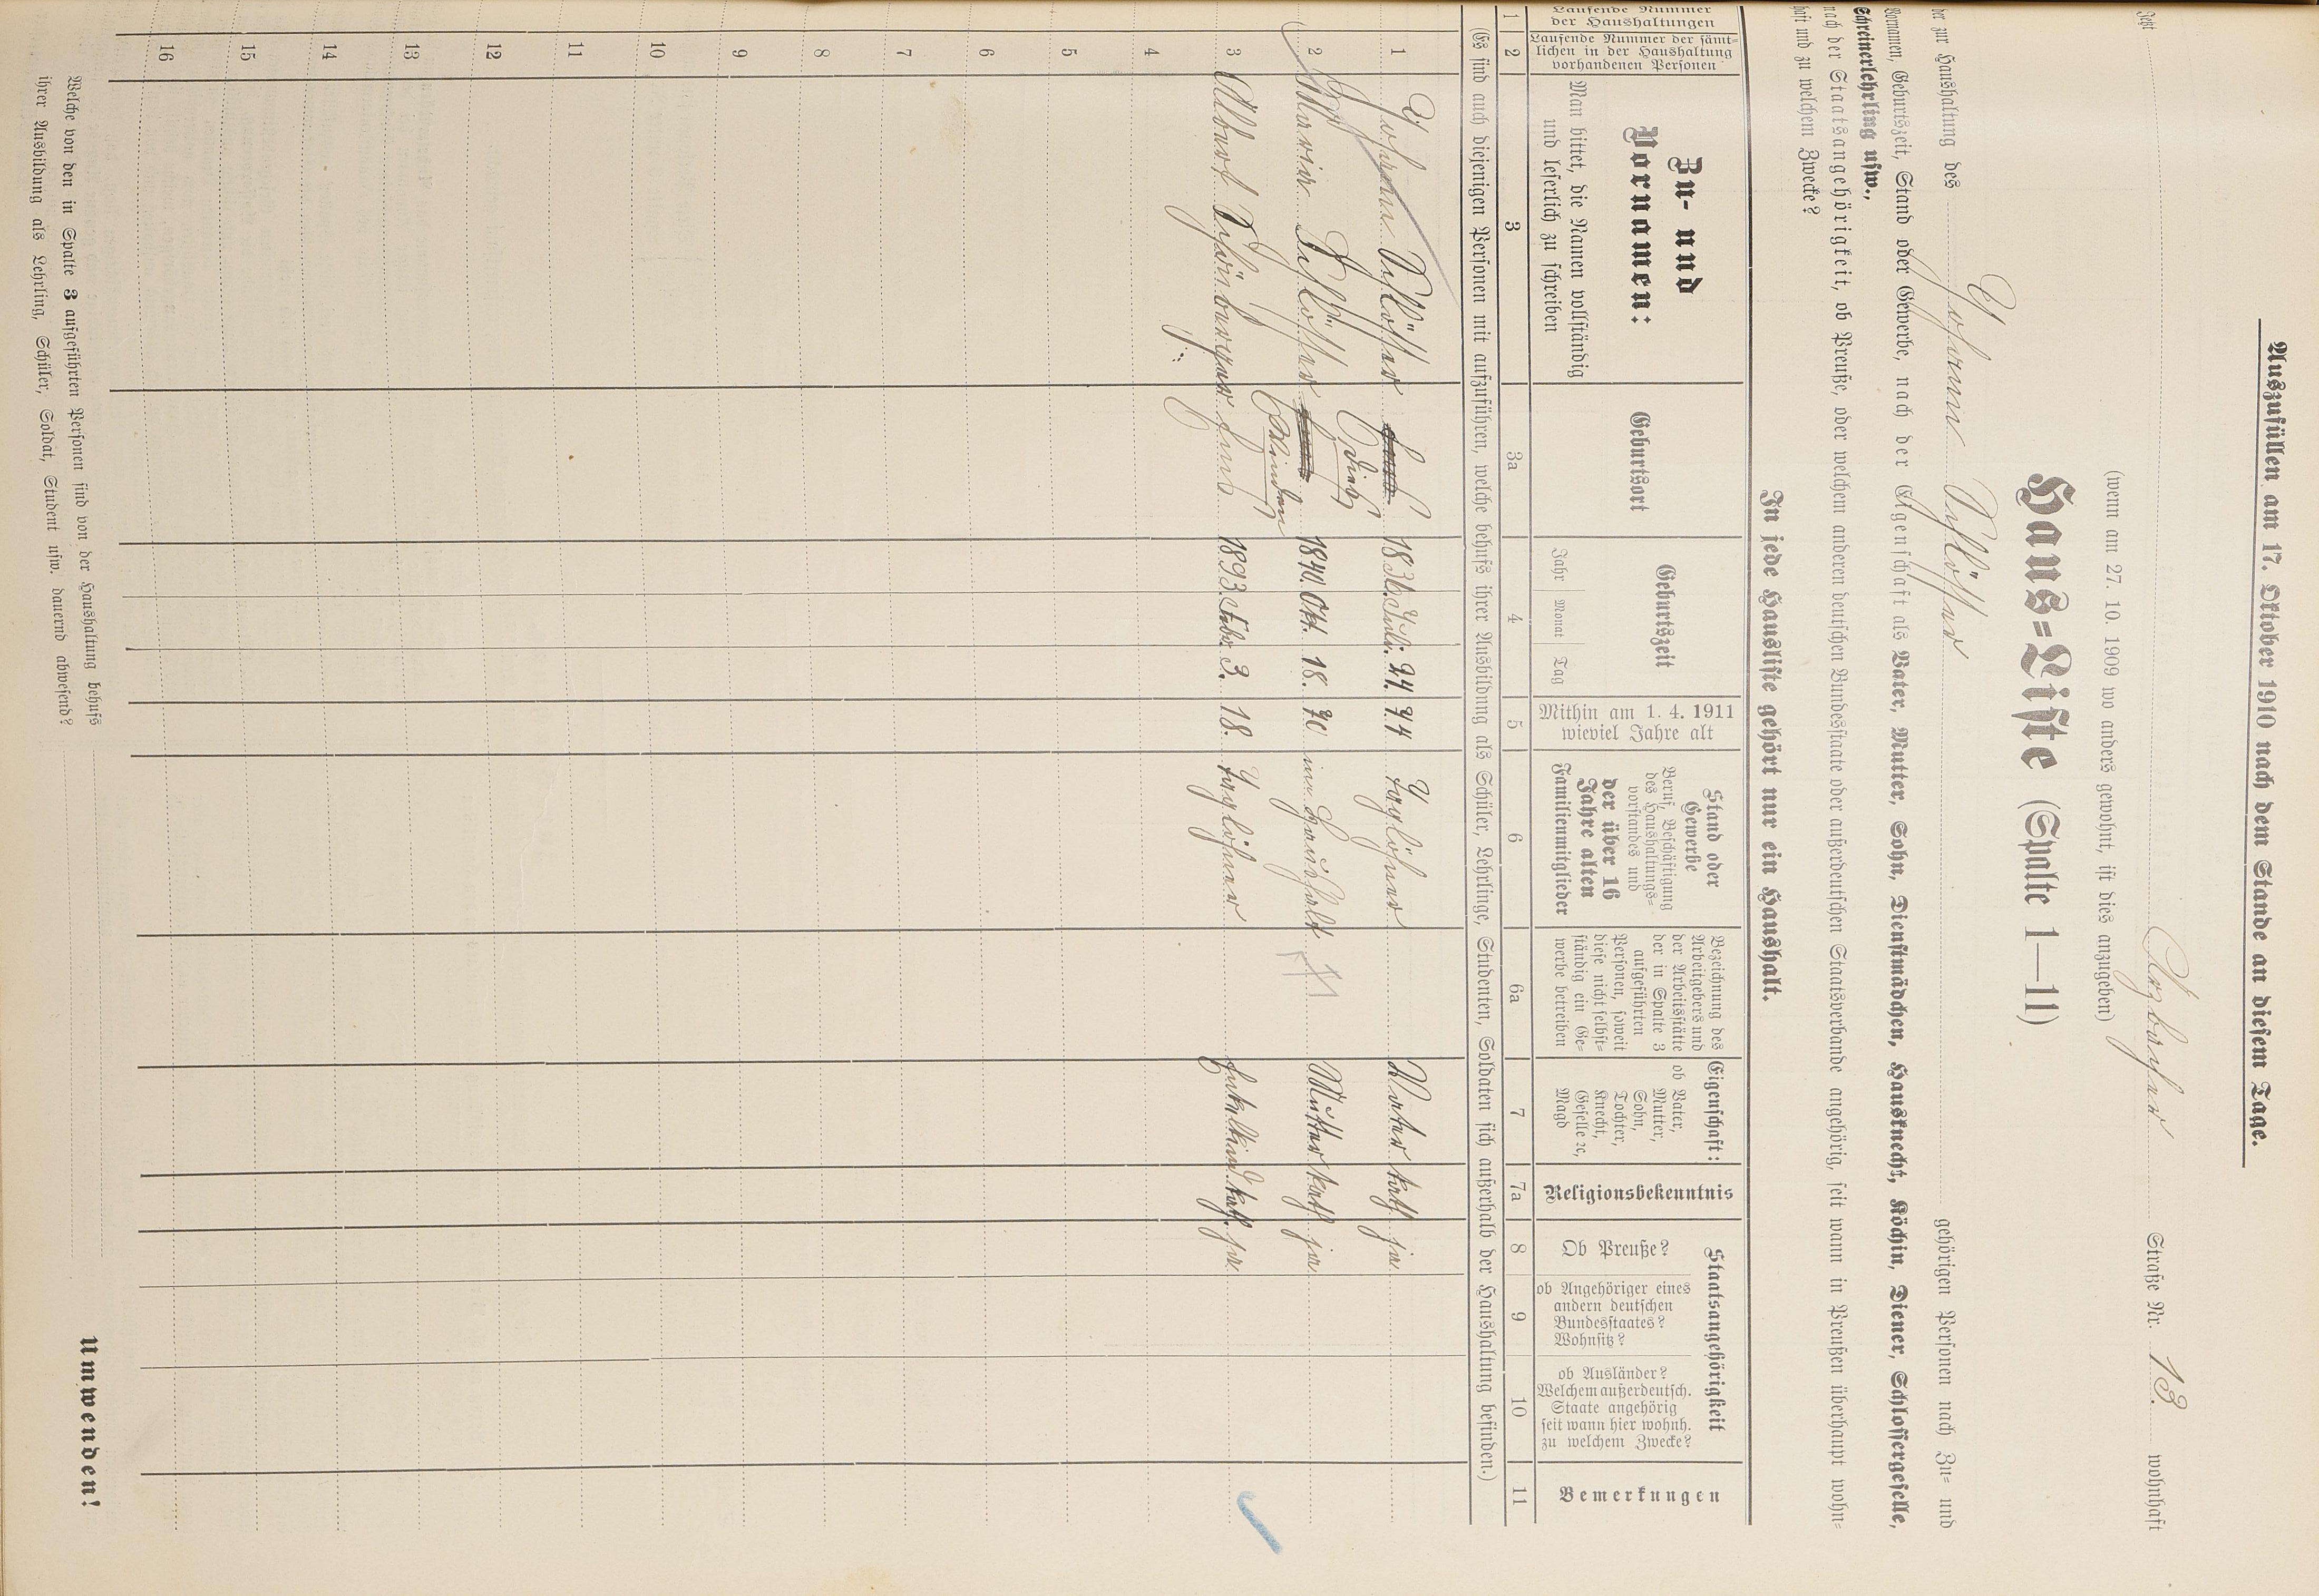 Auszufüllen am 17. Oktober 1910 nach dem Stande an diesem Tage.
Jetzt Straße Nr. 13. wohnhaft
(wenn am 27. 10. 1909 wo anders gewohnt, ist dies anzugeben)
Haus-Liste (Spalte 1—11)
der zur Haushaltung des Johann Schlösser gehörigen Personen nach Zu- und
Vornamen, Geburtszeit, Stand oder Gewerbe, nach der Eigenschaft als Vater, Mutter, Sohn, Dienstmädchen, Hausknecht, Köchin, Diener, Schlossergeselle,
Schreinerlehrling usw.,
nach der Staatsangehörigkeit, ob Preuße, oder welchem anderen deutschen Bundesstaate oder außerdeutschen Staatsverbande angehörig, seit wann in Preußen überhaupt wohn-
haft und zu welchem Zwecke?
In jede Hausliste gehört nur ein Haushalt.
Laufende Nummer
der Haushaltungen
Laufende Nummer der sämt-
lichen in der Haushaltung
vorhandenen Personen
Zu- und
Vornamen:
Man bittet, die Namen vollständig
und leserlich zu schreiben
Geburtsort
Geburtszeit
Jahr Monat Tag
Mithin am 1. 4. 1911
wieviel Jahre alt
Stand oder
Gewerbe
Beruf, Beschäftigung
des Haushaltungs-
vorstandes und
der über 16
Jahre alten
Familienmitglieder
Bezeichnung des
Arbeitgebers und
der Arbeitsstätte
der in Spalte 3
aufgeführten
Personen, soweit
diese nicht selbst-
ständig ein Ge-
werbe betreiben
Eigenschaft:
ob Vater,
Mutter,
Sohn,
Tochter,
Knecht,
Geselle ꝛc,
Magd
Religionsbekenntnis
Staatsangehörigkeit
Ob Preuße?
ob Angehöriger eines
andern deutschen
Bundesstaates?
Wohnsitz?
ob Ausländer?
Welchem außerdeutsch.
Staate angehörig
seit wann hier wohnh.
zu welchem Zwecke?
Bemerkungen
1 2 3 3a 4 5 6 6a 7 7a 8 9 10 11
(Es sind auch diejenigen Personen mit aufzuführen, welche behufs ihrer Ausbildung als Schüler, Lehrlinge, Studenten, Soldaten sich außerhalb der Haushaltung befinden.)
1 Johann Schlösser 1836. Juli. 24. 74 Taglöhner Vater kath ja
2 Maria Schlösser 1840. Okt. 18. 70 im Haushalt Mutter kath ja
3 Albert Schönberger 1893. Febr. 3. 18. Taglöhner Enkelkind kath. ja
4
5
6
7
8
9
10
11
12
13
14
15
16
Welche von den in Spalte 3 aufgeführten Personen sind von der Haushaltung behufs
ihrer Ausbildung als Lehrling, Schüler, Soldat, Student usw. dauernd abwesend?
Umwenden!